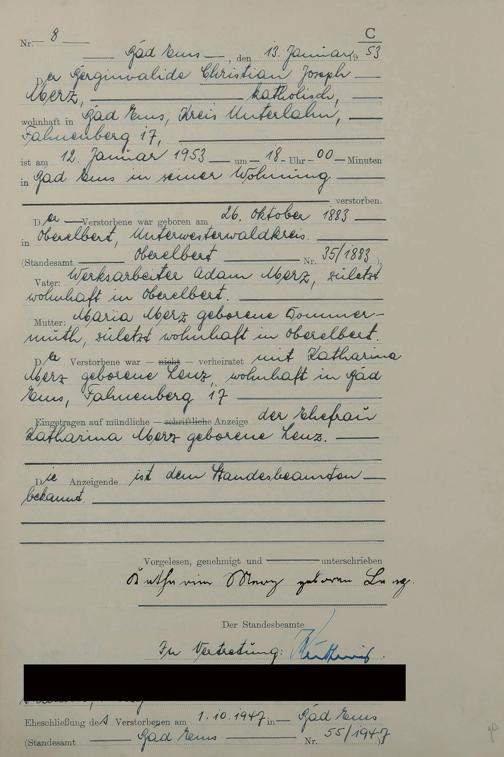 C
Nr. 8
Bad Ems, den 13. Januar 1953
Der Berginvalide Christian Joseph
Merz, katholisch,
wohnhaft in Bad Ems, Kreis Unterlahn,
Fahnenberg 17,
ist am 12. Januar 1953 um 18 Uhr 00 Minuten
in Bad Ems in seiner Wohnung
verstorben.
Der Verstorbene war geboren am 26. Oktober 1883
in Oberelbert, Unterwesterwaldkreis.
(Standesamt Oberelbert Nr. 35/1883),
Vater: Werksarbeiter Adam Merz, zuletzt
wohnhaft in Oberelbert.
Mutter: Maria Merz geborene Dommer-
muth, zuletzt wohnhaft in Oberelbert.
Der Verstorbene war nicht verheiratet mit Katharina
Merz geborene Lenz, wohnhaft in Bad
Ems, Fahnenberg 17
Eingetragen auf mündliche schriftliche Anzeige der Ehefrau
Katharina Merz geborene Lenz.
Die Anzeigende ist dem Standesbeamten
bekannt.
Vorgelesen, genehmigt und unterschrieben
Katharina Merz geboren Lenz.
Der Standesbeamte
In Vertretung:
Eheschließung des Verstorbenen am 1.10.1947 in Bad Ems
(Standesamt Bad Ems Nr. 55/1947